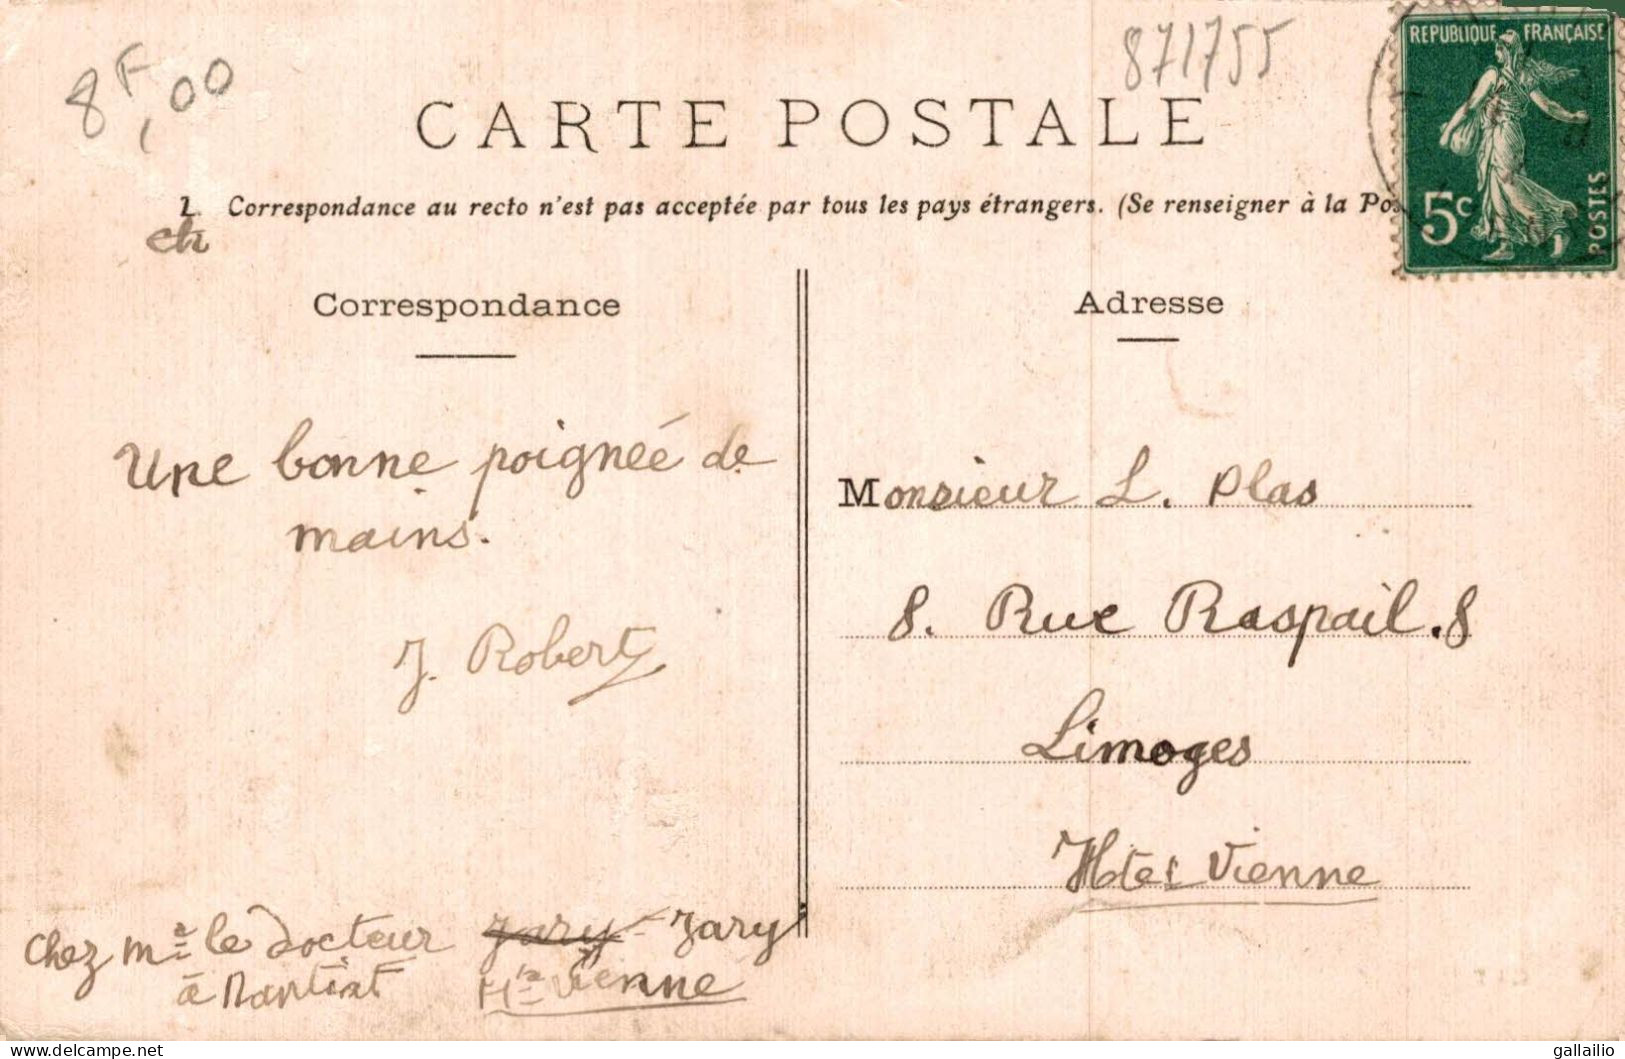 8F,00
871755
CARTE POSTALE
REPUBLIQUE FRANÇAISE
5c
POSTES
Correspondance au recto n'est pas acceptée par tous les pays étrangers. (Se renseigner à la Pos
Correspondance
Adresse
Une bonne poignée de
mains.
J. Robert
Monsieur L. Plas
8. Rue Raspail. 8
Limoges
Hte Vienne
Chez Mr le docteur Jary Jary
à Nantiat Hte Vienne
© delcampe.net
gallailio